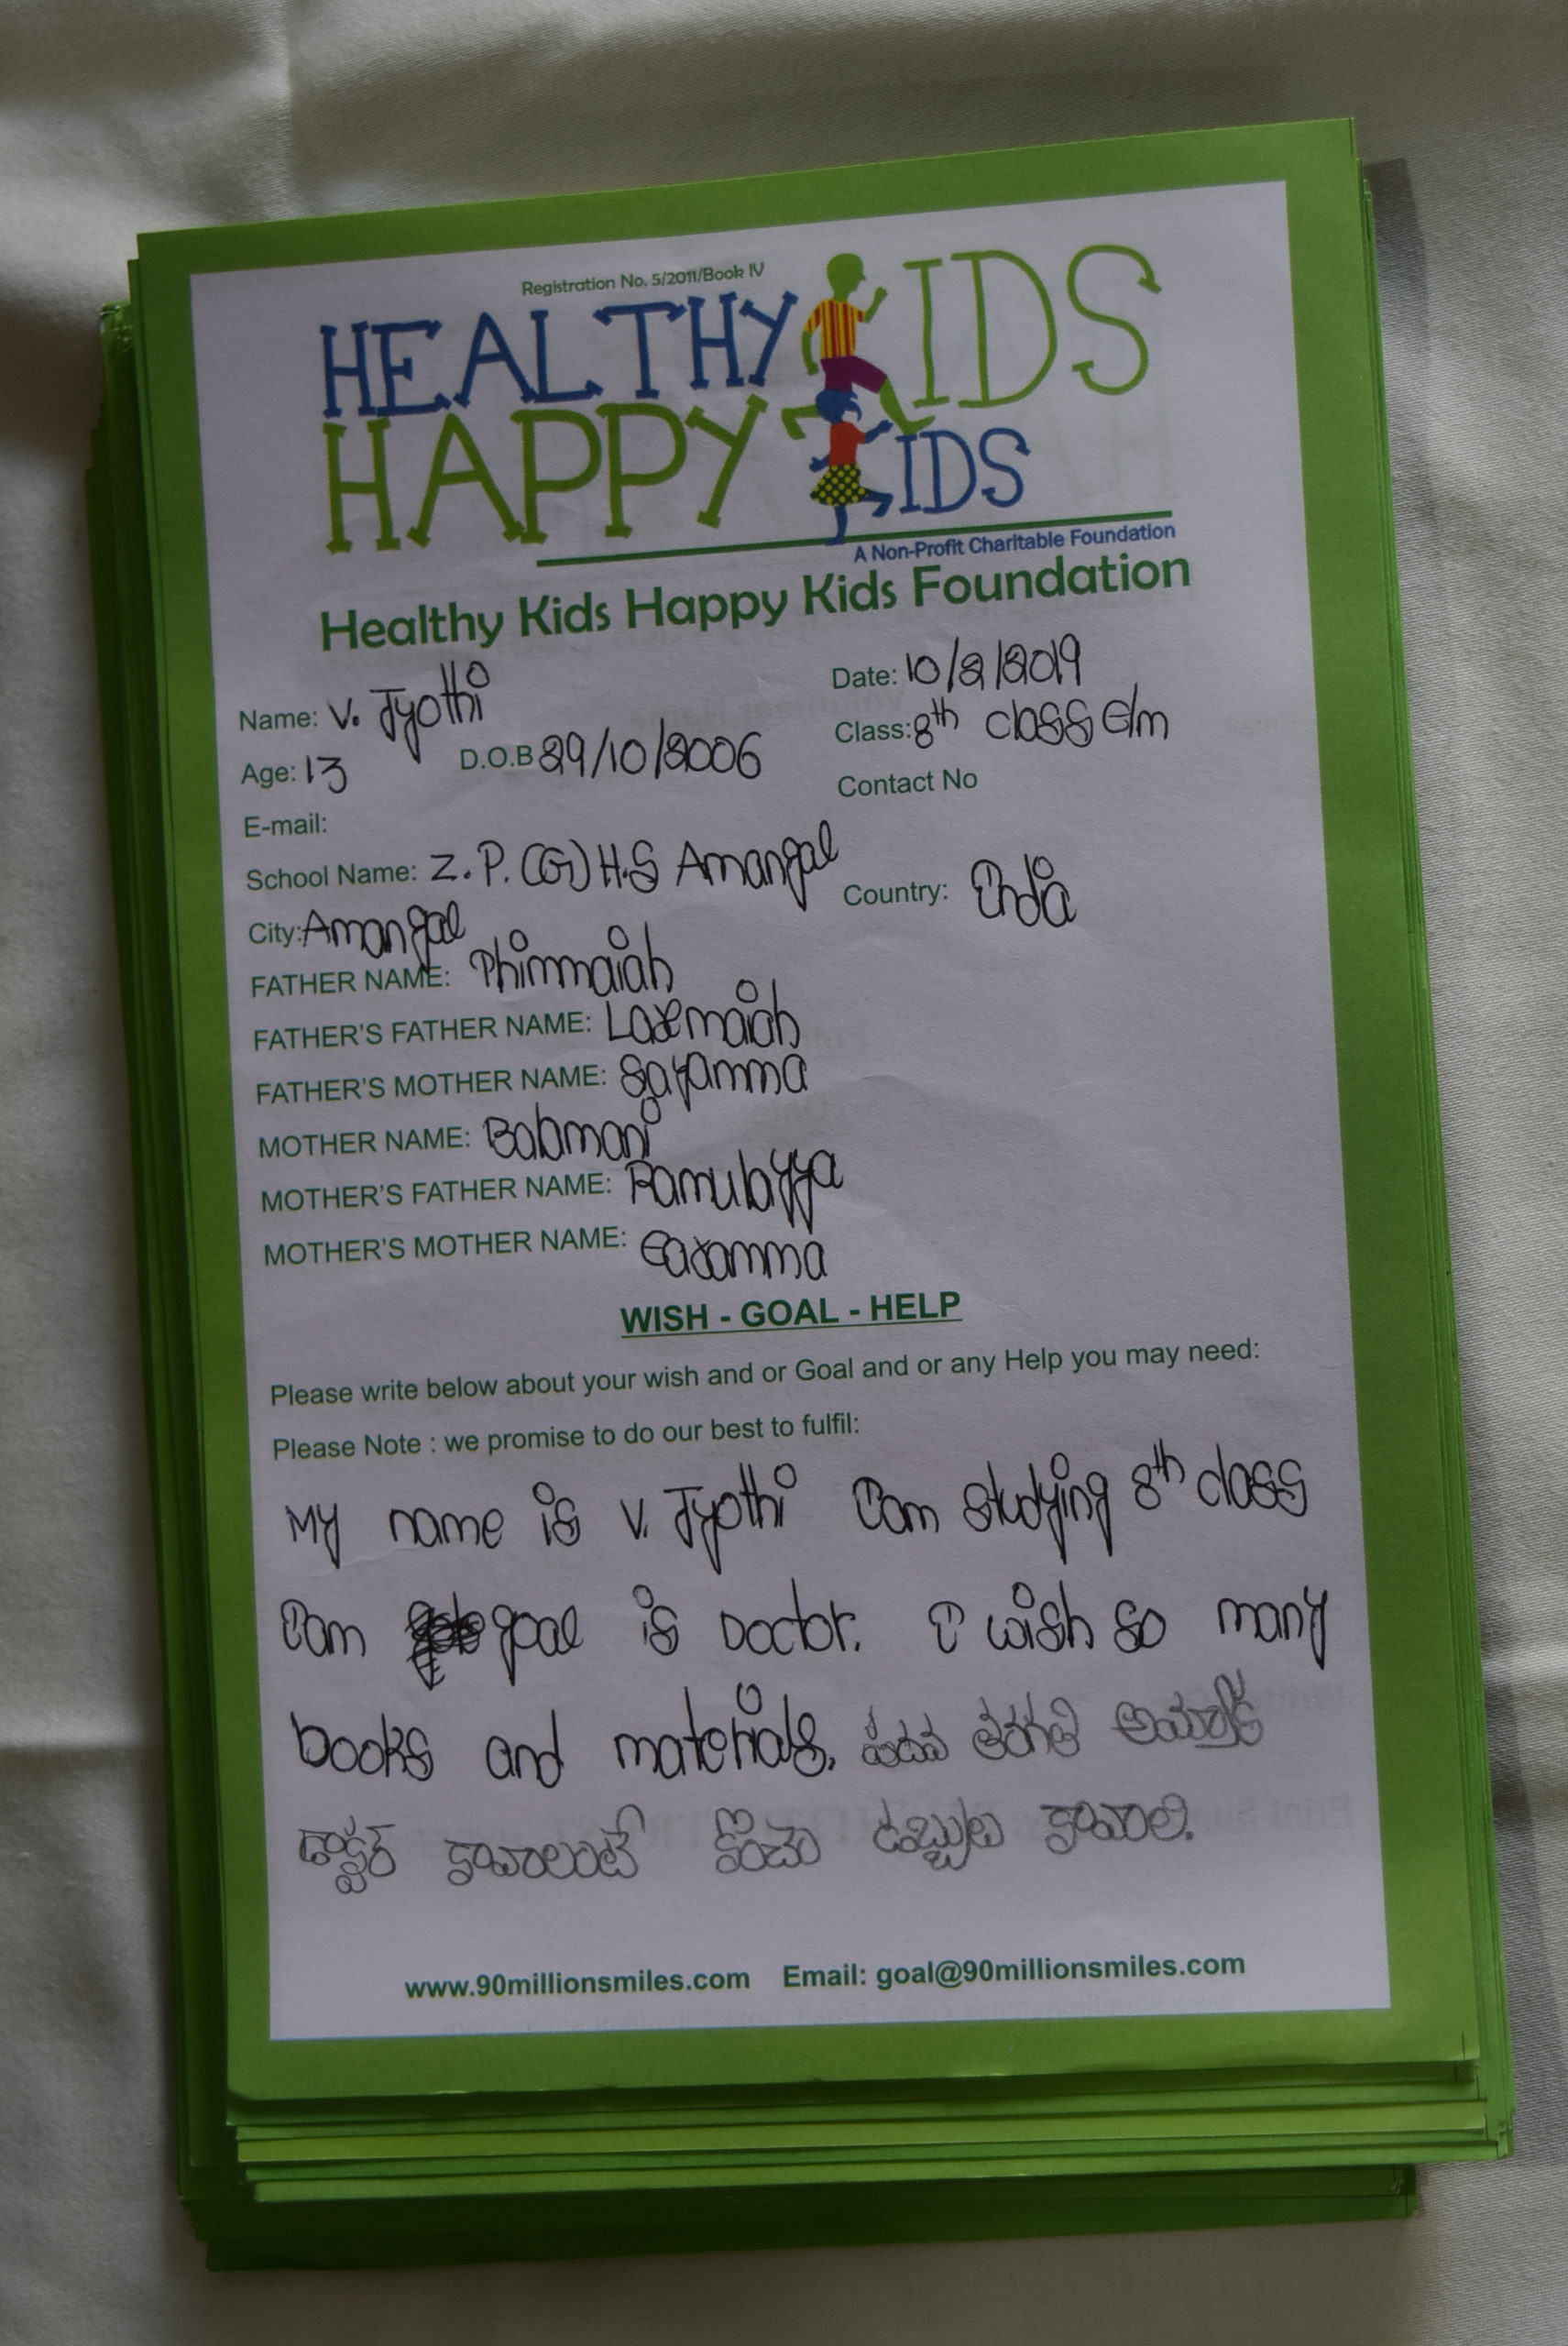 Registration No. 5/2011/Book IV
HEALTHY KIDS
HAPPY KIDS
A Non-Profit Charitable Foundation
Healthy Kids Happy Kids Foundation
Name: V. Jyothi Date: 10/2/2019
Age: 13 D.O.B 29/10/2006 Class: 8th class E/m
E-mail: Contact No
School Name: Z.P.(G) H.S Amangal
City: Amangal Country: India
FATHER NAME: Thimmaiah
FATHER'S FATHER NAME: Laxmaiah
FATHER'S MOTHER NAME: Sayamma
MOTHER NAME: Balamani
MOTHER'S FATHER NAME: Ramulayya
MOTHER'S MOTHER NAME:
WISH - GOAL - HELP
Please write below about your wish and or Goal and or any Help you may need:
Please Note : we promise to do our best to fulfil:
My name is V. Jyothi I am studying 8th class
I am goal is Doctor. I wish so many
books and materials. తరగతి
డాక్టర్ కావాలంటే కొంచెం డబ్బులు కావాలి.
www.90millionsmiles.com Email: goal@90millionsmiles.com